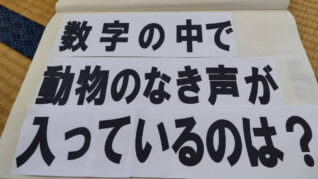 数字の中で
動物のなき声が
入っているのは？